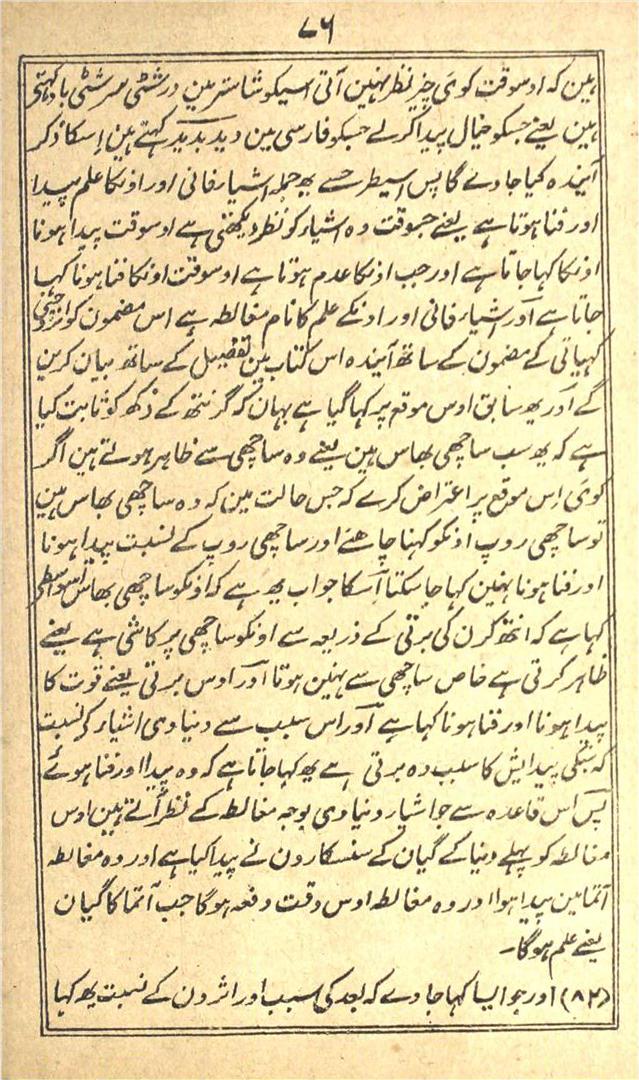 ۷۶
ہین کہ اوسوقت کوئی چیز نظر نہین آتی اسیکو شاستر مین درشٹی سرشٹی باد کہتی
ہین یعنے جسکو خیال پیدا کرلے جسکو فارسی مین دید بدید کہتے ہین اسکا ذکر
آیندہ کیا جاویگا پس اسیطرحسے یہ جملہ اشیار فانی اور اونکا علم پیدا
اور فنا ہوتا ہے یعنے جسوقت وہ اشیاء کو نظر دیکھتی ہے اوسوقت پیدا ہونا
اونکا کہا جاتا ہے اور جب اونکا عدم ہوتا ہے اوسوقت اونکا فنا ہونا کہا
جاتا ہے اور اشیار فانی اور اونکے علم کا نام مغالطہ ہے اس مضمون کو
کہیاتی کے مضمون کے ساتھ آیندہ اس کتاب مین تفصیل کے ساتھ بیان کرین
گے اور یہ سابق اوس موقع پر کہا گیا ہے یہان کہ گرنتھ کے دُکھ کو ثابت کیا
ہے کہ یہ سب ساچھی بھاس ہین یعنے وہ ساچھی سے ظاہر ہوتے ہین اگر
کوئی اِس موقع پر اعتراض کرے کہ جس حالت مین کہ وہ ساچھی بھاس ہین
تو ساچھی روپ اونکو کہنا چاہئے اور ساچھی روپ کے نسبت پیدا ہونا
اور فنا ہونا نہین کہا جا سکتا اسکا جواب یہ ہے کہ اونکو ساچھی بھاس اسواسطے
کہا ہے کہ انتھ کرن کی برتی کے ذریعہ سے اونکو ساچھی پرکاشی ہے یعنے
ظاہر کرتی ہے خاص ساچھی سے نہین ہوتا اور اوس برتی یعنے قوت کا
پیدا ہونا اور فنا ہونا کہا ہے اور اس سبب سے دنیاوی اشیار کی نسبت
کہ جنکی پیدایش کا سبب وہ برتی ہے یہ کہا جاتا ہے کہ وہ پیدا اور فنا ہوئے
پس اس قاعدہ سے جو اشیار دنیاوی بوجہ مغالطہ کے نظر آتے ہین اوس
مغالطہ کو پہلے دنیا کے گیان کے سنسکارون نے پیدا کیا ہے اور وہ مغالطہ
آتما مین پیدا ہوا اور وہ مغالطہ اوس وقت دفعہ ہوگا جب آتما کا گیان
یعنے علم ہوگا۔
(۸۲) اور جو ایسا کہا جاوے کہ بعد کی سبب اور اثرون کے نسبت یہ کہا